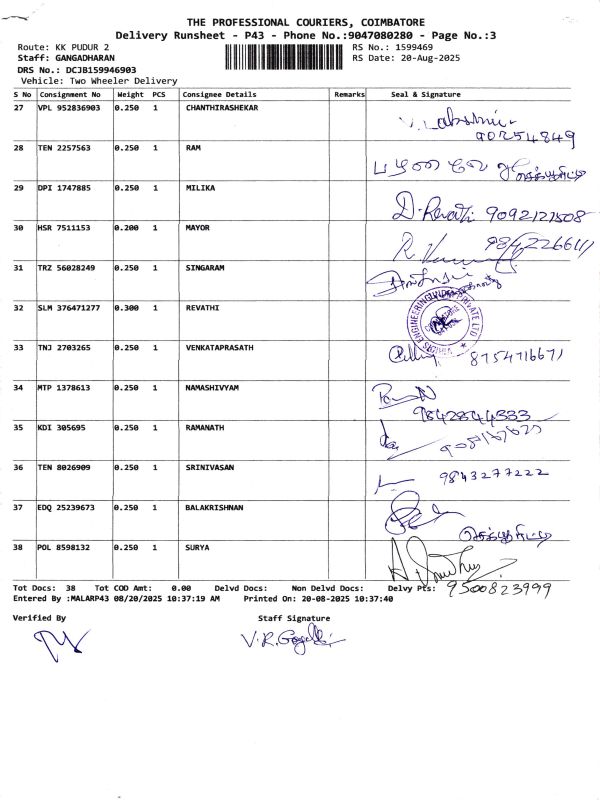 THE PROFESSIONAL COURIERS, COIMBATORE
Delivery Runsheet - P43 - Phone No.:9047080280 - Page No.:3
Route: KK PUDUR 2 RS No.: 1599469
Staff: GANGADHARAN RS Date: 20-Aug-2025
DRS No.: DCJB159946903
Vehicle: Two Wheeler Delivery
S No Consignment No Weight PCS Consignee Details Remarks Seal & Signature
27 VPL 952836903 0.250 1 CHANTHIRASHEKAR
90254849
28 TEN 2257563 0.250 1 RAM
29 DPI 1747885 0.250 1 MILIKA
D. Revathi 9092121508
30 HSR 7511153 0.200 1 MAYOR
31 TRZ 56028249 0.250 1 SINGARAM
32 SLM 376471277 0.300 1 REVATHI
33 TNJ 2703265 0.250 1 VENKATAPRASATH
8754716671
34 MTP 1378613 0.250 1 NAMASHIVYAM
9842844333
35 KDI 305695 0.250 1 RAMANATH
36 TEN 8026909 0.250 1 SRINIVASAN
9843277222
37 EDQ 25239673 0.250 1 BALAKRISHNAN
38 POL 8598132 0.250 1 SURYA
9500823999
Tot Docs: 38 Tot COD Amt: 0.00 Delvd Docs: Non Delvd Docs: Delvy Pts:
Entered By :MALARP43 08/20/2025 10:37:19 AM Printed On: 20-08-2025 10:37:40
Verified By Staff Signature